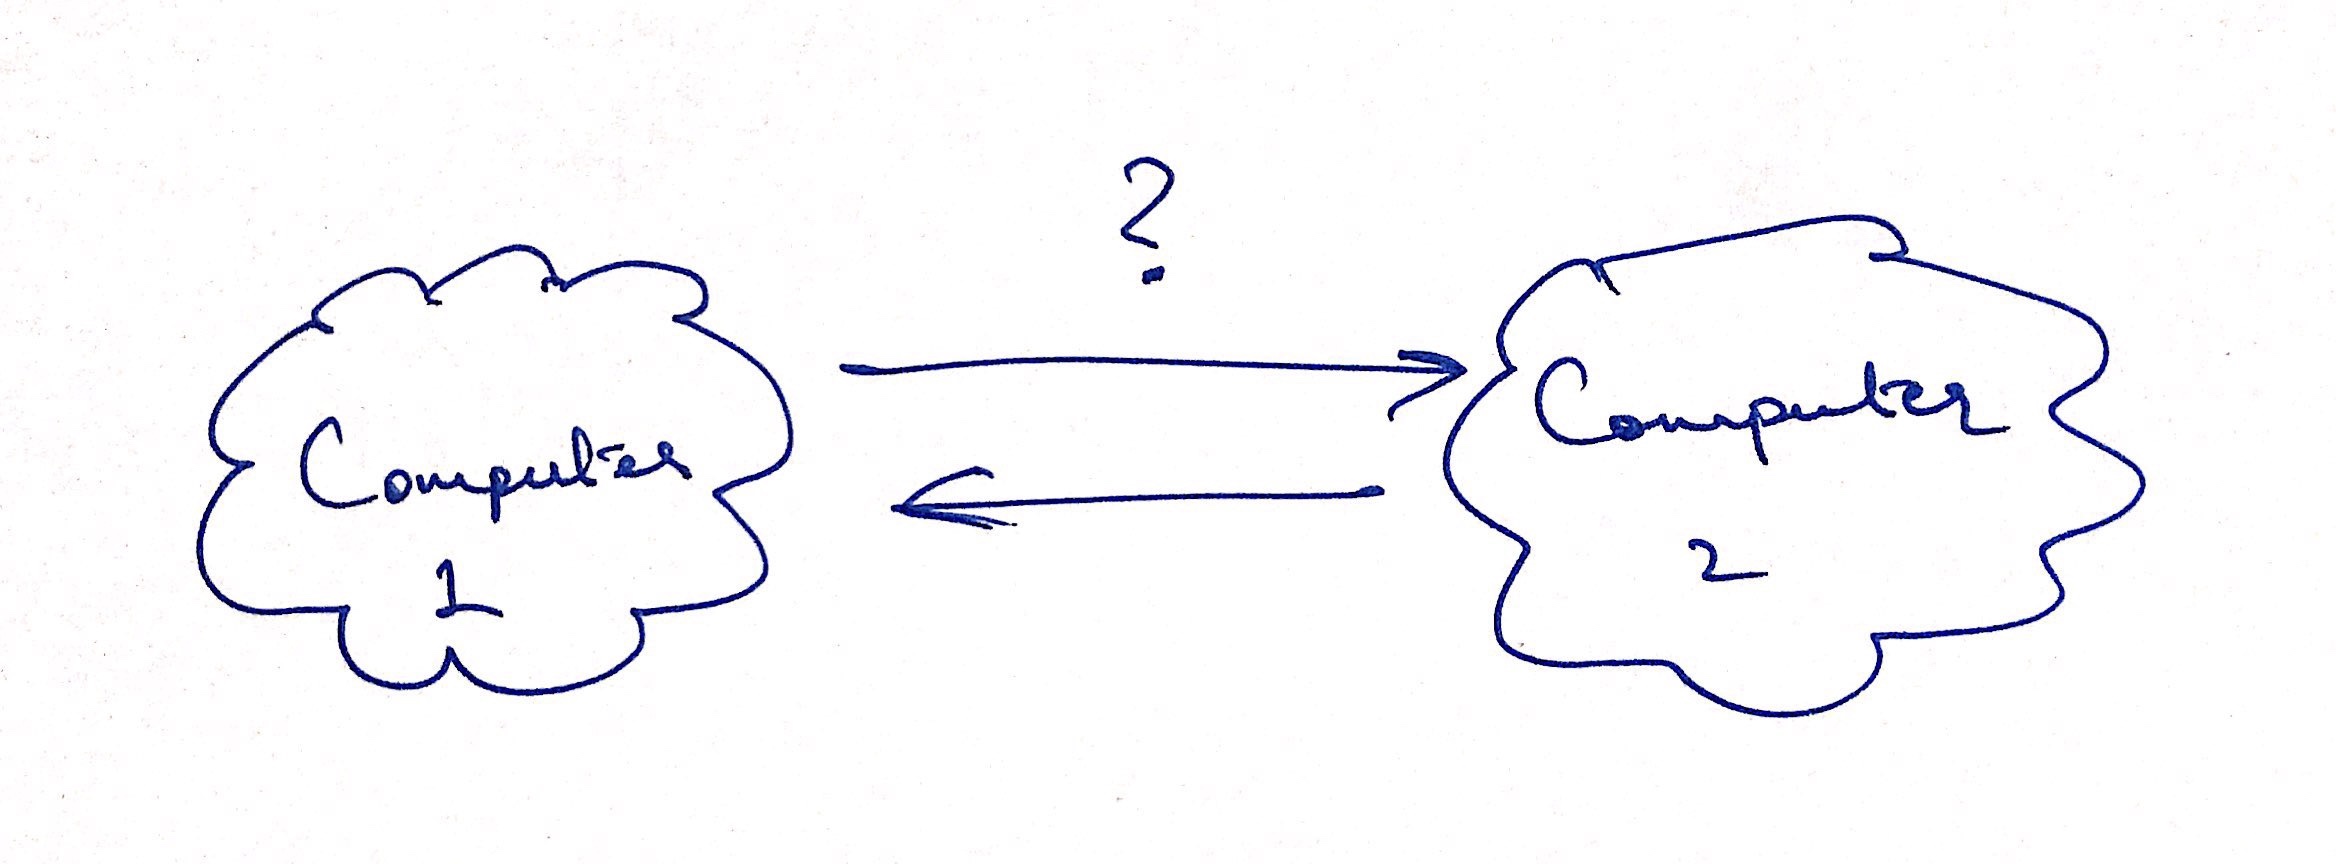 ?
Computer
1
Computer
2